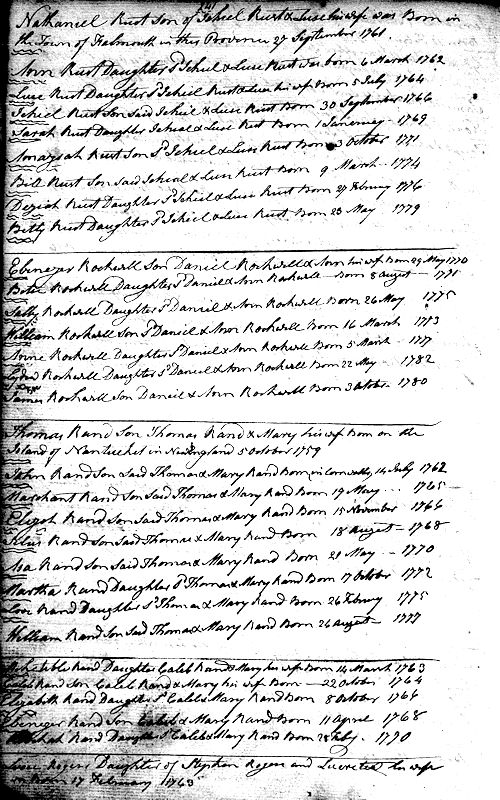 Nathaniel Rust Son of Jehiel Rust & Luse his wife was Born in
the Town of Falmouth in this Province 27 September 1761
Ann Rust Daughter Sd Jehiel & Luse Rust was born 6 March 1762
Luse Rust Daughter Sd Jehiel Rust & Luse his wife Born 5 July 1764
Jehiel Rust Son Said Jehiel & Luse Rust Born 30 September 1766
Sarah Rust Daughter Jehiel & Luse Rust Born 1769
Amaziah Rust Son Sd Jehiel & Luse Rust Born 3 October 1771
Bill Rust Son Said Jehiel & Luse Rust Born 9 March 1774
Rust Daughter Sd Jehiel & Luse Rust Born 27 1776
Betty Rust Daughter Sd Jehiel & Luse Rust Born 23 May 1779
Ebenezer Rockwell Son Daniel Rockwell & Ann his wife Born 29 May 1770
Rockwell Daughter Sd Daniel & Ann Rockwell Born 8 August 1771
Sally Rockwell Daughter Sd Daniel & Ann Rockwell Born 26 May 1775
William Rockwell Son Sd Daniel & Ann Rockwell Born 16 March 1773
Anne Rockwell Daughter Sd Daniel & Ann Rockwell Born 5 March 1777
Lydia Rockwell Daughter Sd Daniel & Ann Rockwell Born 22 May 1782
James Rockwell Son Daniel & Ann Rockwell Born 3 October 1780
Thomas Rand Son Thomas Rand & Mary his wife Born on the
Island of Nantucket in New England 5 October 1759
John Rand Son Said Thomas & Mary Rand Born in Cornwallis, 14 July 1762
Marchant Rand Son Said Thomas & Mary Rand Born 19 May 1765
Elijah Rand Son Said Thomas & Mary Rand Born 15 November 1766
Silas Rand Son Said Thomas & Mary Rand Born 18 August 1768
Asa Rand Son Said Thomas & Mary Rand Born 21 May 1770
Martha Rand Daughter Sd Thomas & Mary Rand Born 17 October 1772
Love Rand Daughter Sd Thomas & Mary Rand Born 26 1775
William Rand Son Said Thomas & Mary Rand Born 26 August 1777
Mehetable Rand Daughter Caleb Rand & Mary his wife Born 14 March 1763
Caleb Rand Son Caleb Rand & Mary his wife Born 22 October 1764
Elizabeth Rand Daughter Sd Caleb & Mary Rand Born 8 October 1766
Ebenezer Rand Son Caleb & Mary Rand Born 11 April 1768
Rand Daughter Sd Caleb & Mary Rand Born 28 1770
Rogers Daughter of Stephen Rogers and Lucretia his wife
Born 17 February 1763